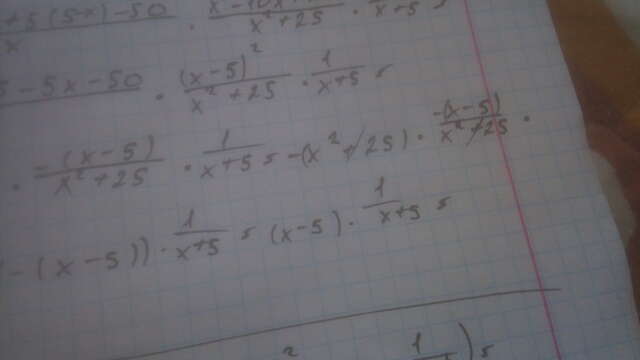 +5(5+x)-50 / x · x²-10x+ / x²+25 · / x+5 =
5-5x-50 · (x-5)² / x²+25 · 1 / x+5 =
· -(x-5) / x²+25 · 1 / x+5 = -(x²+25) · -(x-5) / x²+25 ·
-(x-5)) · 1 / x+5 = (x-5) · 1 / x+5 =
2 1 ) 5